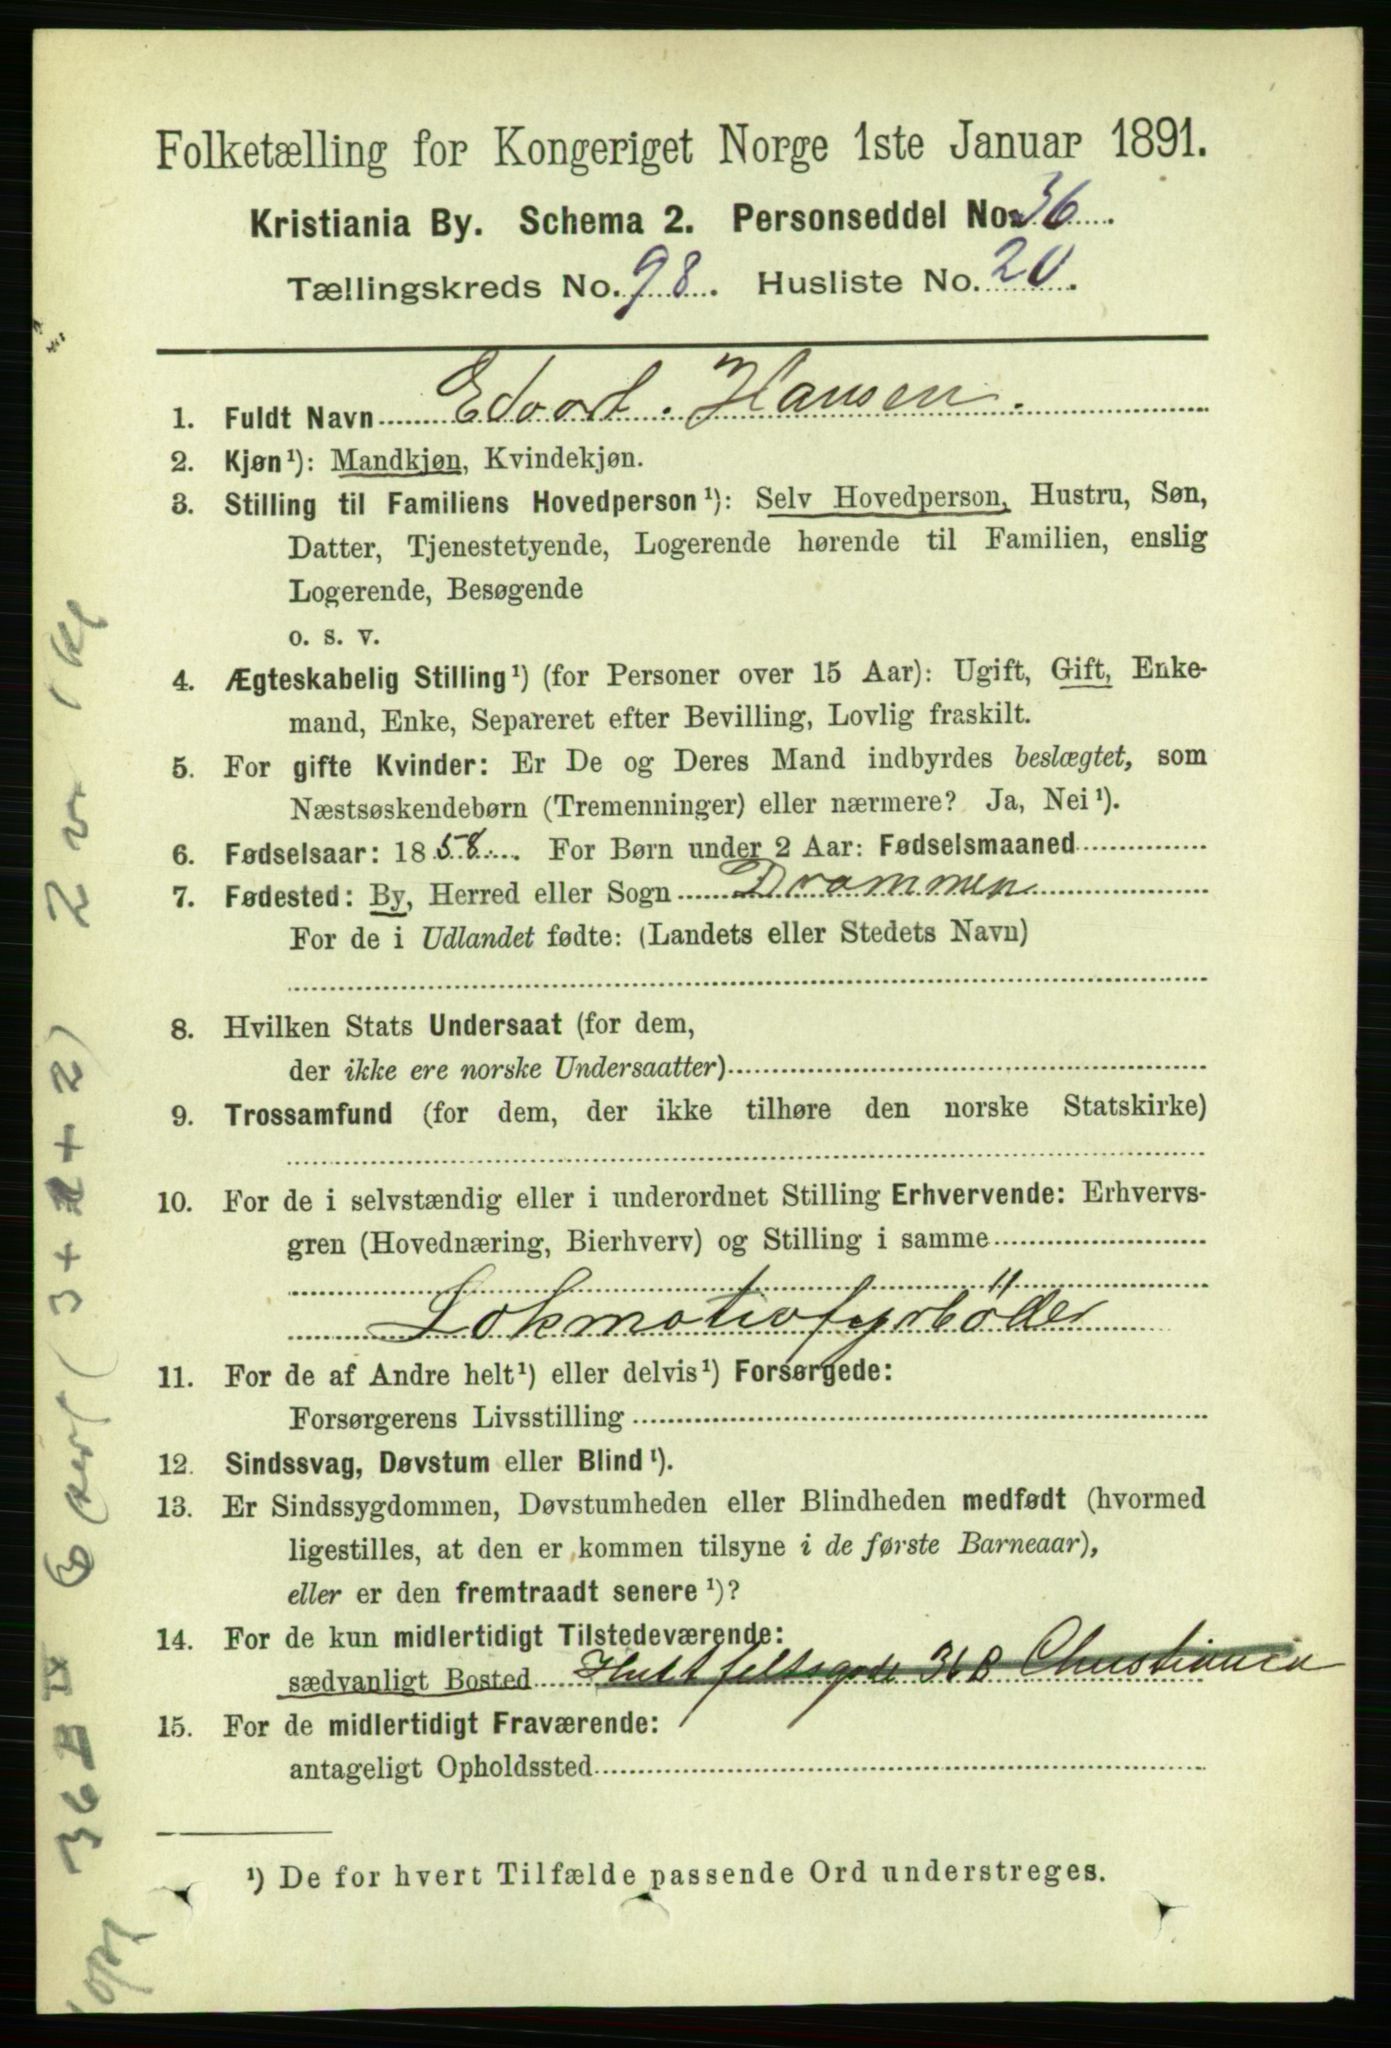 Folketælling for Kongeriget Norge 1ste Januar 1891.
Kristiania By. Schema 2. Personseddel No. 36.
Tællingskreds No. 98. Husliste No. 20.
1. Fuldt Navn Edvart. Hansen.
2. Kjøn¹): Mandkjøn, Kvindekjøn.
3. Stilling til Familiens Hovedperson¹): Selv Hovedperson, Hustru, Søn,
Datter, Tjenestetyende, Logerende hørende til Familien, enslig
Logerende, Besøgende
o. s. v.
4. Ægteskabelig Stilling¹) (for Personer over 15 Aar): Ugift, Gift, Enke-
mand, Enke, Separeret efter Bevilling, Lovlig fraskilt.
5. For gifte Kvinder: Er De og Deres Mand indbyrdes beslægtet, som
Næstsøskendebørn (Tremenninger) eller nærmere? Ja, Nei¹).
6. Fødselsaar: 1858. For Børn under 2 Aar: Fødselsmaaned
7. Fødested: By, Herred eller Sogn Drammen
For de i Udlandet fødte: (Landets eller Stedets Navn)
8. Hvilken Stats Undersaat (for dem,
der ikke ere norske Undersaatter)
9. Trossamfund (for dem, der ikke tilhøre den norske Statskirke)
10. For de i selvstændig eller i underordnet Stilling Erhvervende: Erhvervs-
gren (Hovednæring, Bierhverv) og Stilling i samme
Lokmotivfyrböder
11. For de af Andre helt¹) eller delvis¹) Forsørgede:
Forsørgerens Livsstilling
12. Sindssvag, Døvstum eller Blind¹).
13. Er Sindssygdommen, Døvstumheden eller Blindheden medfødt (hvormed
ligestilles, at den er kommen tilsyne i de første Barneaar),
eller er den fremtraadt senere¹)?
14. For de kun midlertidigt Tilstedeværende:
sædvanligt Bosted Huitfeltsgade 36 B Christiania
15. For de midlertidigt Fraværende:
antageligt Opholdssted
¹) De for hvert Tilfælde passende Ord understreges.
36 II IX 6 (3 + 1 + 2) 2